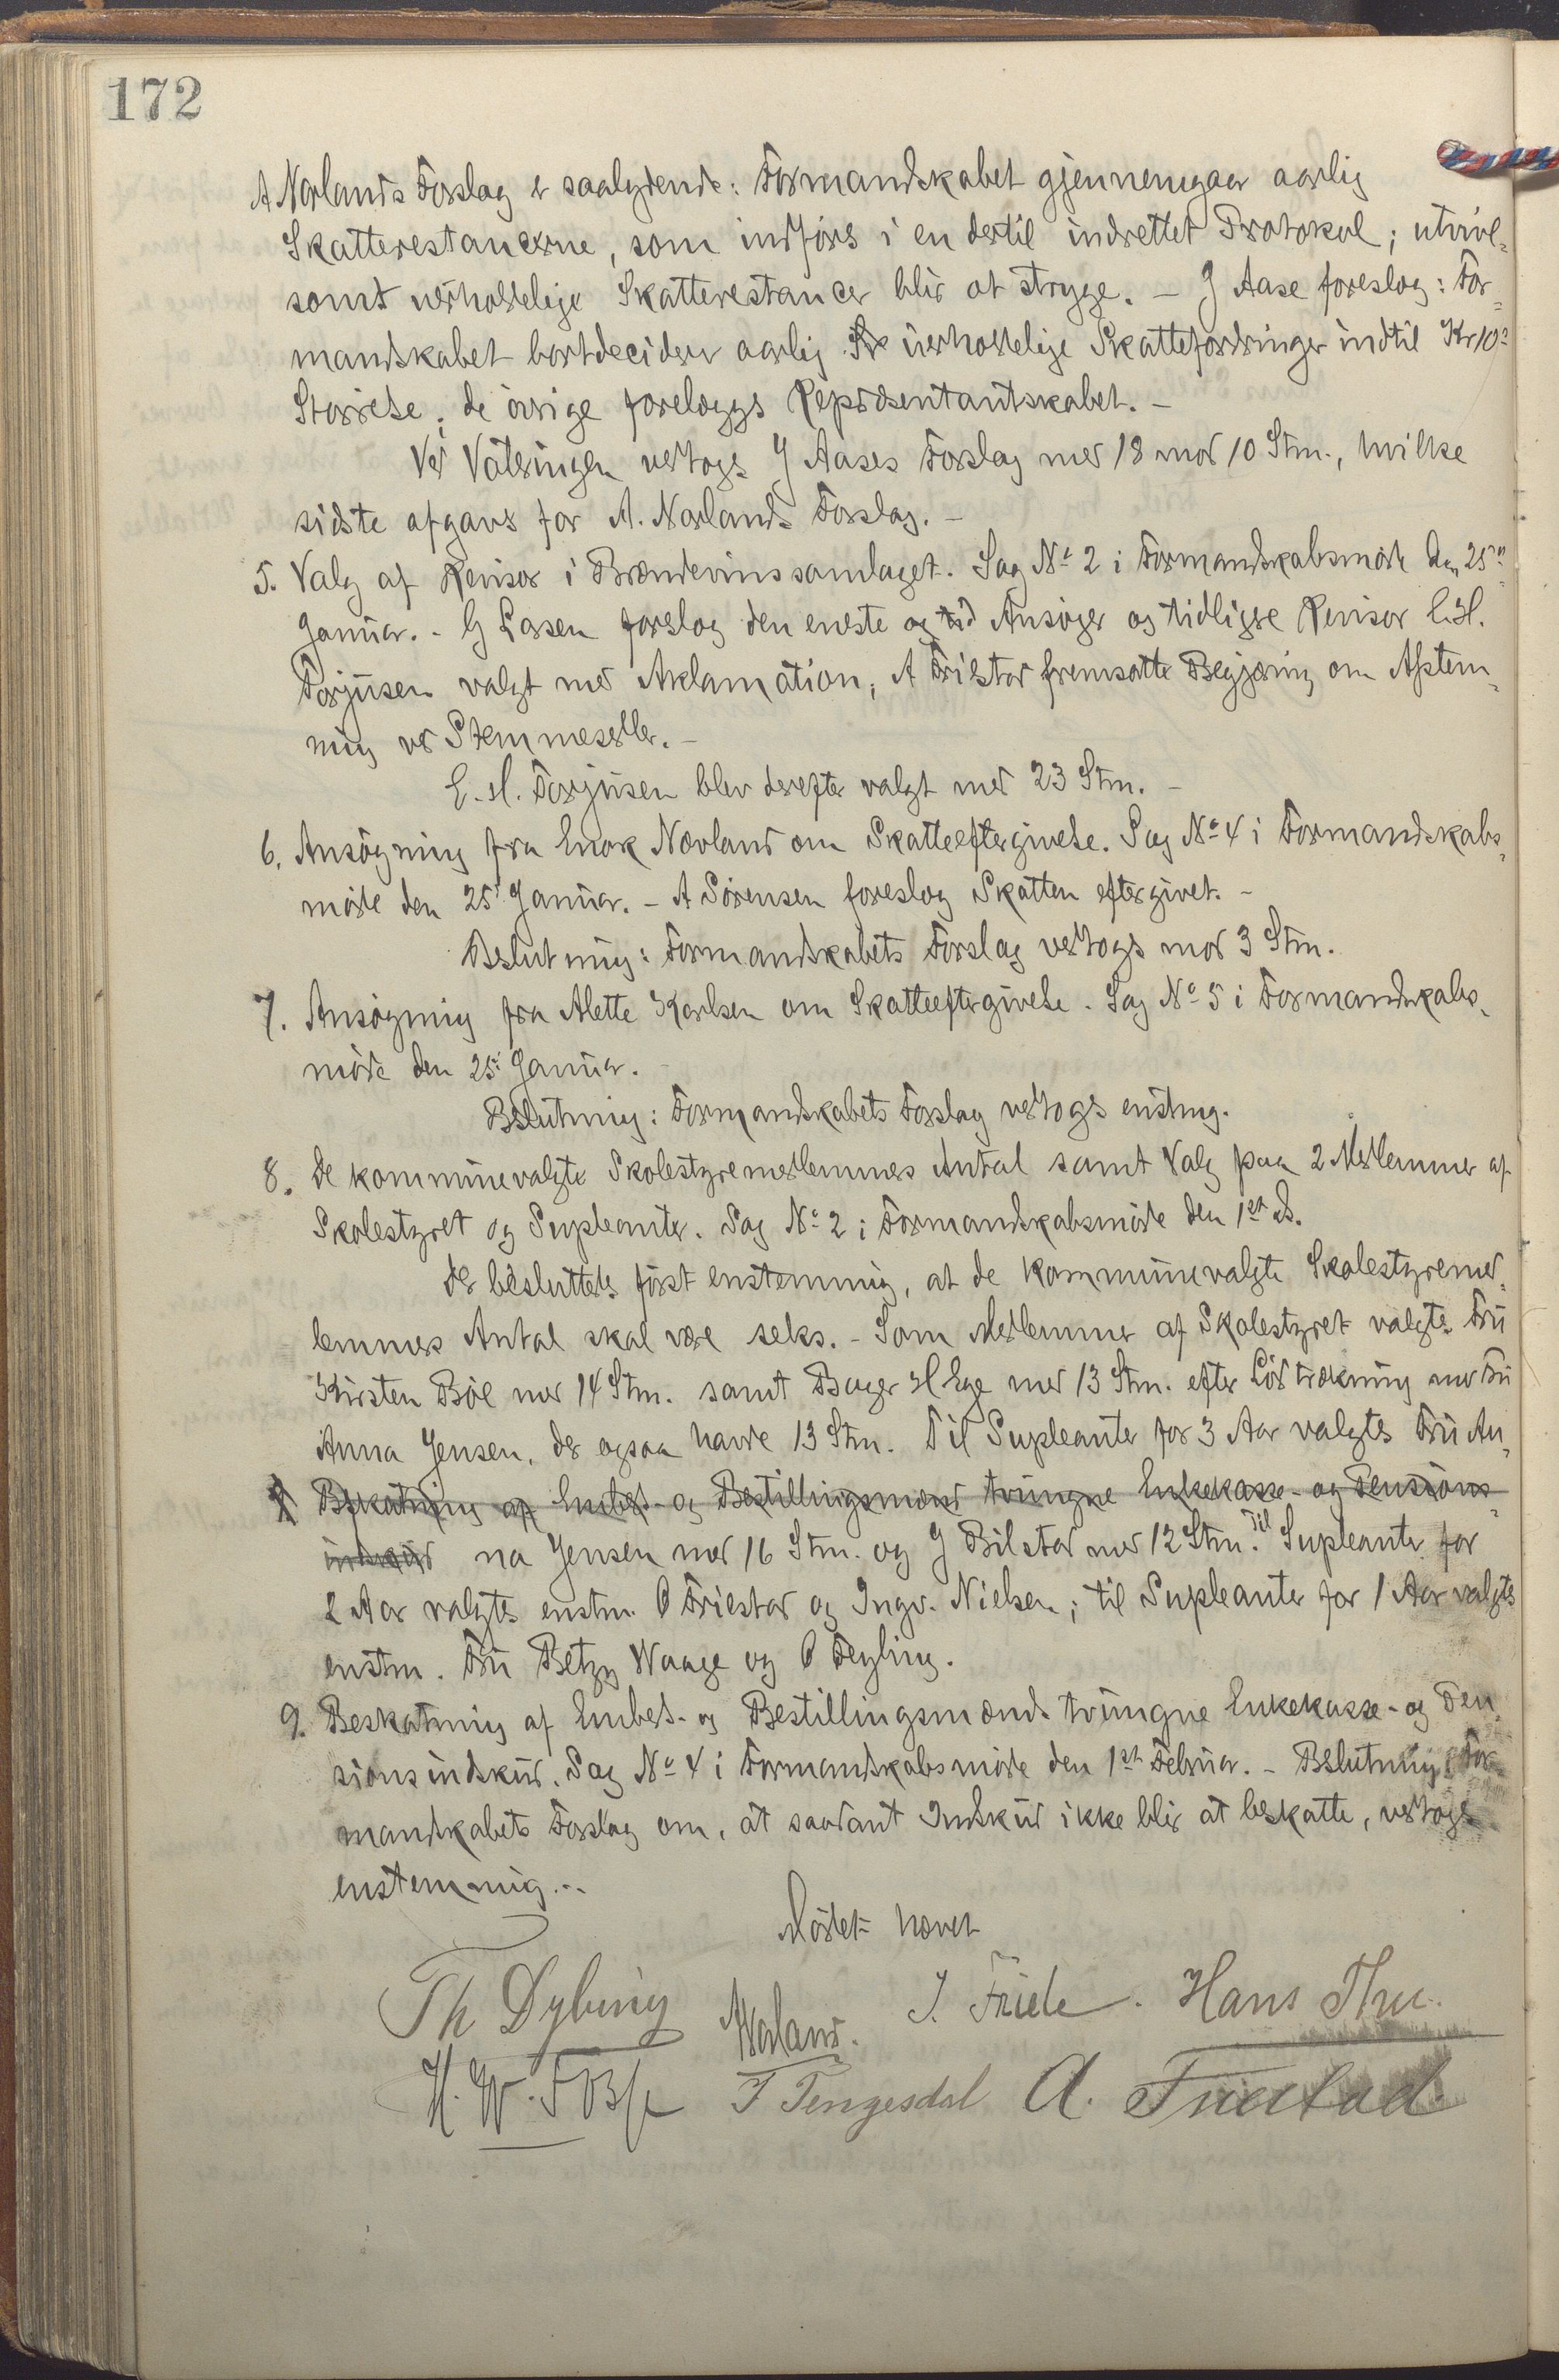 172
A Norlands Forslag er saalydende: Formandskabet gjennemgaar aarlig
Skatterestancerne, som indføres i en dertil indrettet Protokol; utvivl=
somt uerholdelige Skatterestancer blir at stryge. – J Aase foreslog: For=
mandskabet bortdeciderer aarlig Sk uerholdelige Skattefordringer indtil Kr 10:
Størrelse; de øvrige forelægges Repræsentantskabet. –
Ved Voteringen vedtoges J Aases Forslag med 18 mod 10 Stm., hvilke
sidste afgaves for A. Norlands Forslag. –
5. Valg af Revisor i Brændevinssamlaget. Sag No 2 i Formandskabsmøde den 25de
Januar. – G Larsen foreslog den eneste og tid Ansøger og tidligere Revisor E. H.
Torjusen valgt med Aklamation; A Friestad fremsatte Begjæring om Afstem=
ning ved Stemmesedler. –
E. H. Torjusen blev derefter valgt med 23 Stm. –
6. Ansøgning fra Enok Nævland om Skatteeftergivelse. Sag No 4 i Formandskabs=
møde den 25: Januar. – A Sørensen foreslog Skatten eftergivet. –
Beslutning: Formandskabets Forslag vedtoges mod 3 Stm.
7. Ansøgning fra Alette Karlsen om Skatteeftergivelse. Sag No 5 i Formandskabs=
møde den 25: Januar. –
Beslutning: Formandskabets Forslag vedtoges enstmg.
8. De kommunevalgte Skolestyremedlemmers Antal samt Valg paa 2 Medlemmer af
Skolestyret og Supleanter. Sag No 2 i Formandskabsmøde den 1st ds.
Der besluttedes først enstemmig, at de kommunevalgte Skolestyremed=
lemmers Antal skal være seks. – Som Medlemmer af Skolestyret valgtes Fru
Kirsten Bøe med 14 Stm. samt Bager H Ege med 13 Stm. efter Lodtrækning med Fru
Anna Jensen, der ogsaa havde 13 Stm. Til Supleanter for 3 Aar valgtes Fru An=
9 Beskatning af Embeds- og Bestillingsmænds tvungne Enkekasse- og Pensions=
indskud na Jensen med 16 Stm. og J Bilstad med 12 Stm. Til Supleanter for
2 Aar valgtes enstm. O Friestad og Ingv. Nielsen; til Supleanter for 1 Aar valgtes
enstm. Fru Betzy Waage og O Feyling.
9. Beskatning af Embeds- og Bestillingsmænds tvungne Enkekasse- og Pen=
sionsindskud. Sag No 4 i Formandskabsmøde den 1st Februar. – Beslutning: For=
mandskabets Forslag om, at saadant Indskud ikke blir at beskatte, vedtoges
enstemmig. –
Mødet hævet
Th Dybing Norland. J. Friele. Hans Thu.
H. W. T Tengesdal A. Friestad